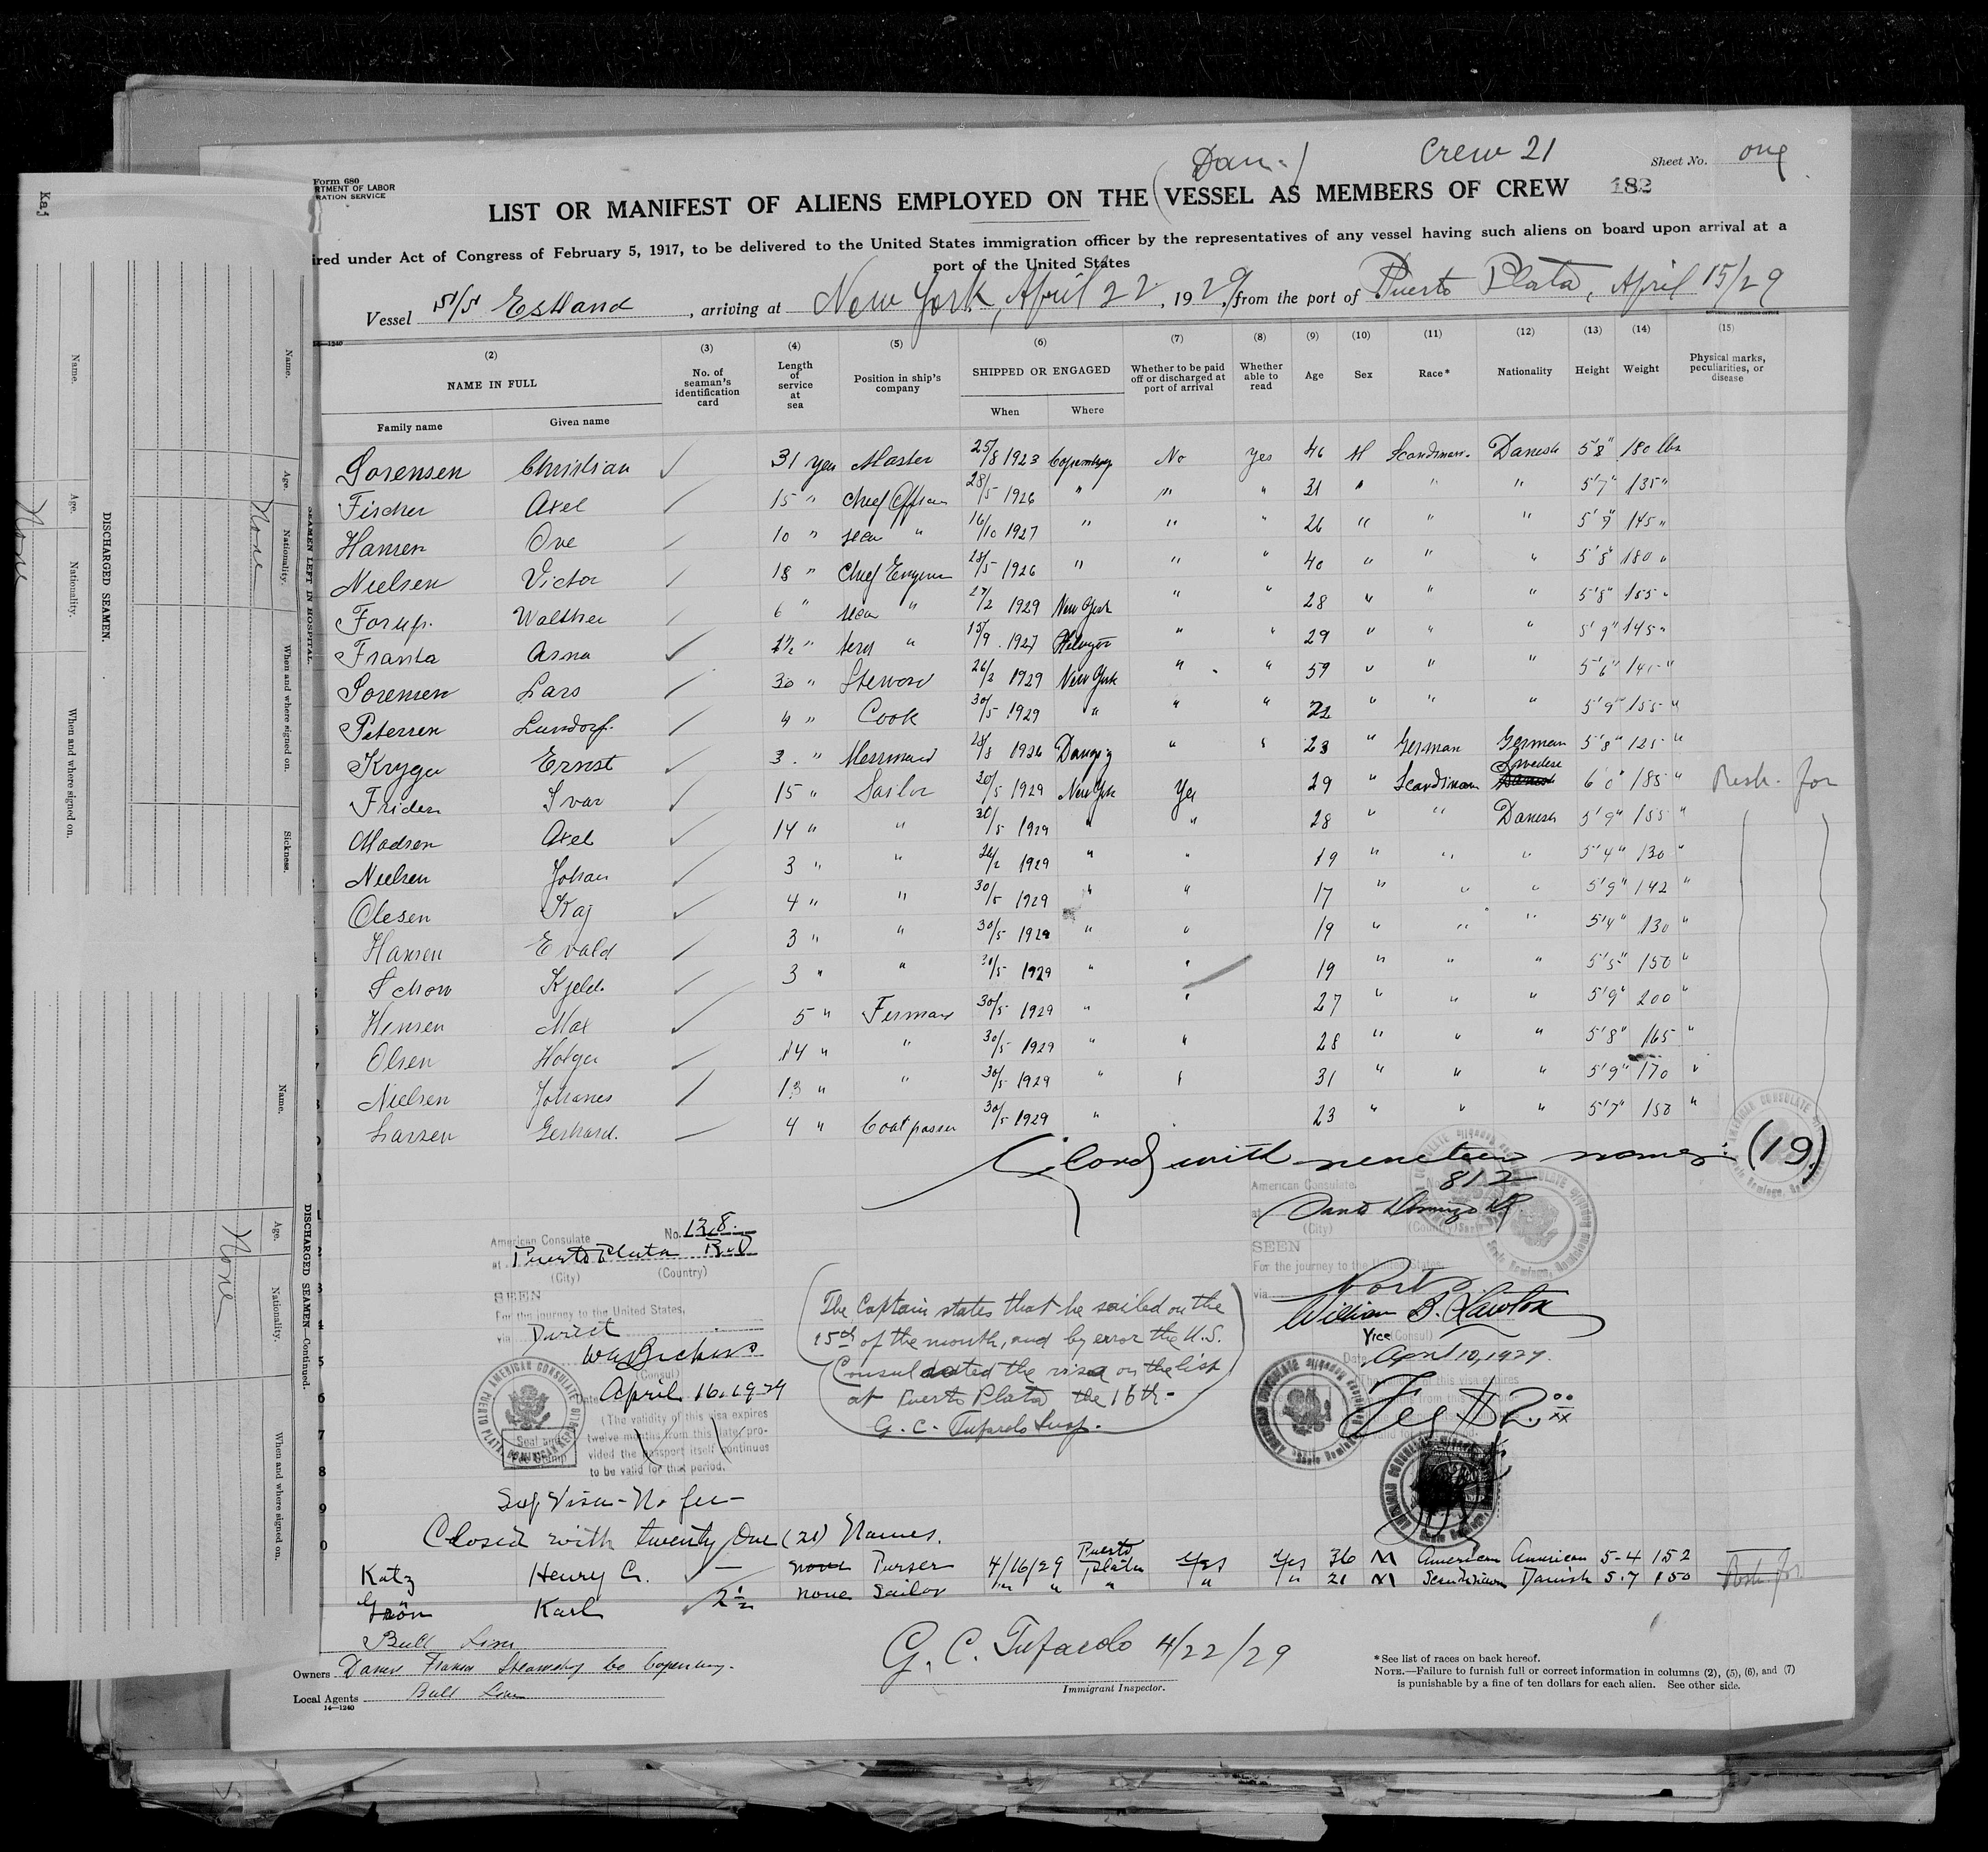 Dan.
Crew 21
Sheet No. one
Form 680
RTMENT OF LABOR
RATION SERVICE
LIST OR MANIFEST OF ALIENS EMPLOYED ON THE VESSEL AS MEMBERS OF CREW
182
ired under Act of Congress of February 5, 1917, to be delivered to the United States immigration officer by the representatives of any vessel having such aliens on board upon arrival at a
port of the United States
Vessel S/S Estland , arriving at New York, April 22, 1929, from the port of Puerto Plata, April 15/29
14—1240
(2) (3) (4) (5) (6) (7) (8) (9) (10) (11) (12) (13) (14) (15)
NAME IN FULL
Family name Given name
No. of seaman's identification card
Length of service at sea
Position in ship's company
SHIPPED OR ENGAGED
When Where
Whether to be paid off or discharged at port of arrival
Whether able to read
Age
Sex
Race*
Nationality
Height
Weight
Physical marks, peculiarities, or disease
Sorensen Christian 31 Master 25/8 1923 No Yes 46 M Danish 5'8" 180 lbs
Fischer Axel 15 " 28/5 1926 " " " 31 " " " 5'7" 135 "
Hansen Ove 10 " " 16/10 1927 " " " 26 " " " 145 "
Nielsen Victor 18 " 28/5 1926 " " " 40 " " " 5'8" 180 "
Forup. 6 " " 1929 New York " " 28 " " " 5'8" 155 "
Franta " " 15/9 1927 " " 29 " " " 5'9" 145 "
Sorensen Lars 30 " 26/2 1929 New York " " 59 " " " 5'6"
Petersen 4 " Cook 30/5 1929 " " " 22 " " " 5'9" 155 "
Ernst 3 " " " 23 " German German 5'8" 125 "
Friden Ivar 15 " Sailor 30/5 1929 New York Yes 29 " Swedese Danish 6'0" 185 "
Madsen Axel 14 " " 30/5 1929 " " 28 " " Danish 5'9" 155 "
Nielsen Johan 3 " " 26/2 1929 " " 19 " " " 5'4" 130 "
Olesen Kaj 4 " " 30/5 1929 " " 17 " " " 5'9" 142 "
Hansen Evald 3 " " 30/5 1929 " " 19 " " " 5'4" 130 "
Schow Kjeld. 3 " " 30/5 1929 " " 19 " " " 5'5" 150 "
Max 5 " 30/5 1929 " " 27 " " " 5'9" 200 "
Olsen Holger 14 " " 30/5 1929 " " 28 " " " 5'8" 165 "
Nielsen Johanes 13 " " 30/5 1929 " " 31 " " " 5'9" 170 "
Larsen Gerhard. 4 " 30/5 1929 " 23 " " " 5'7" 150 "
Closed with nineteen names (19)
American Consulate No. 812
at Santo Domingo
(City) (Country)
SEEN
For the journey to the United States,
via
William B. Lawton
Vice (Consul)
Date April 10, 1929.
Fee $2.00
American Consulate No. 128.
at Puerto Plata R.D
(City) (Country)
SEEN
For the journey to the United States,
via Direct
(Consul)
Date April 16, 1929
(The validity of this visa expires
twelve months from this date, pro-
vided the passport itself continues
to be valid for that period.
AMERICAN CONSULATE
PUERTO PLATA, DOMINICAN REPUBLIC
Seal and
Fee Stamp
The Captain states that he sailed on the
15th of the month, and by error the U.S.
Consul dated the visa on the list
at Puerto Plata the 16th-
G. C. Tufarolo Insp.
Visa - No fee -
Closed with twenty One (21) Names.
Katz Henry C. none Purser 4/16/29 Puerto Plata Yes Yes 36 M American American 5-4 152
Grön Karl 2½ none Sailor " " " " " 21 M Danish 5-7 150
Bull Line
Owners Steamship Co
Local Agents Bull Line
14—1240
G. C. Tufarolo 4/22/29
Immigrant Inspector.
*See list of races on back hereof.
NOTE.—Failure to furnish full or correct information in columns (2), (5), (6), and (7)
is punishable by a fine of ten dollars for each alien. See other side.
Kaj
SEAMEN LEFT IN HOSPITAL
Name. Age. Nationality. When and where signed on. Sickness.
None
DISCHARGED SEAMEN.
Name. Age. Nationality. When and where signed on.
None
DISCHARGED SEAMEN—Continued.
Name. Age. Nationality. When and where signed on.
None